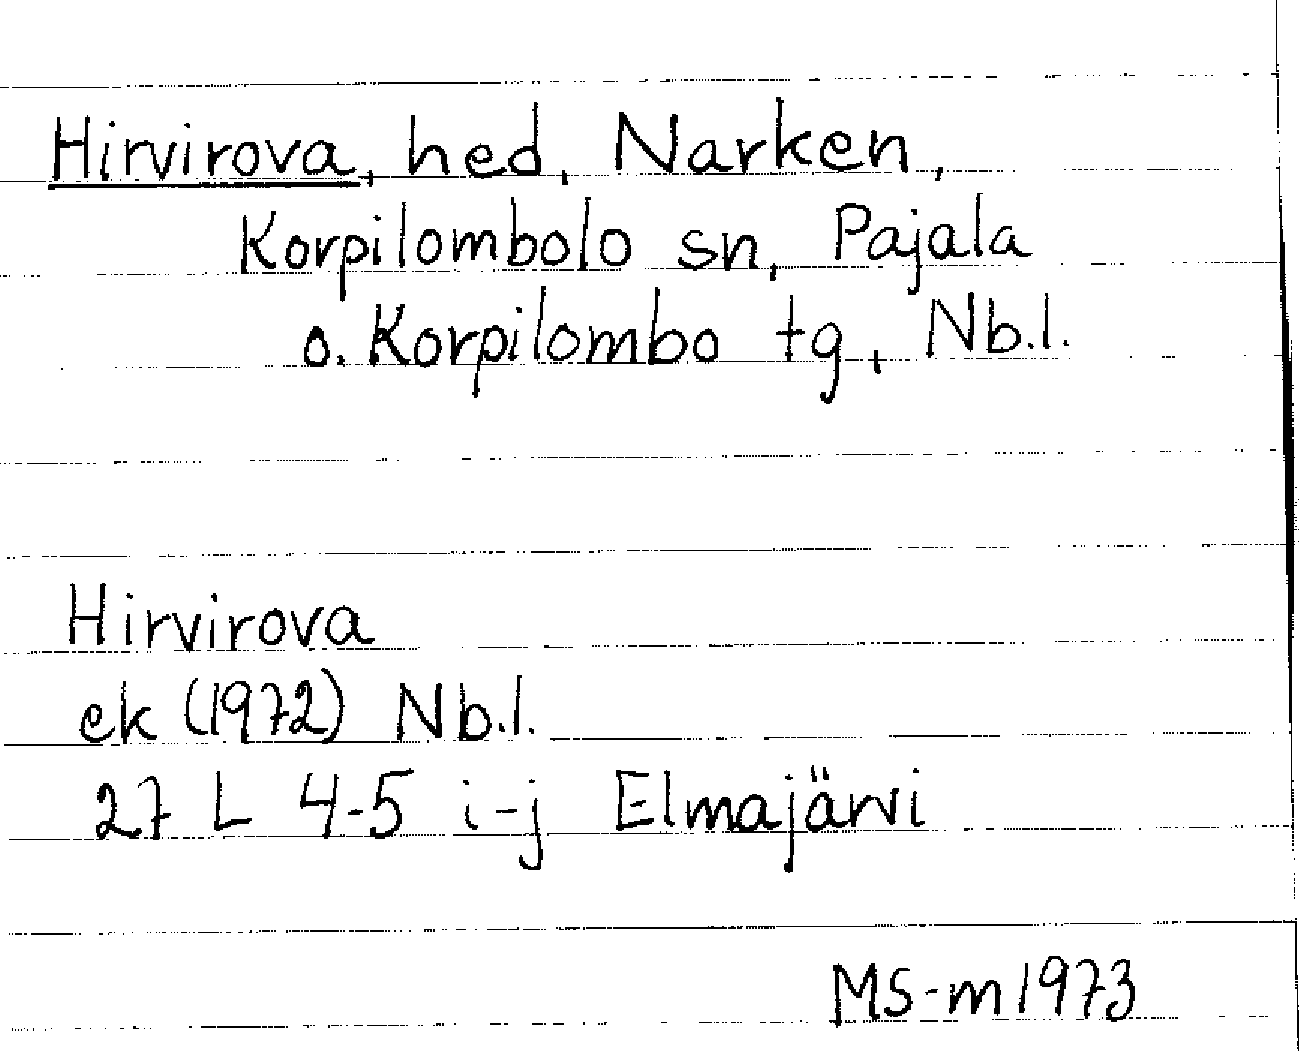 Hirvirova, hed, Narken,
Korpilombolo sn, Pajala
o. Korpilombo tg, Nb.l.
Hirvirova
ek (1972) Nb.l.
27 L 4-5 i-j Elmajärvi
MS-m 1973